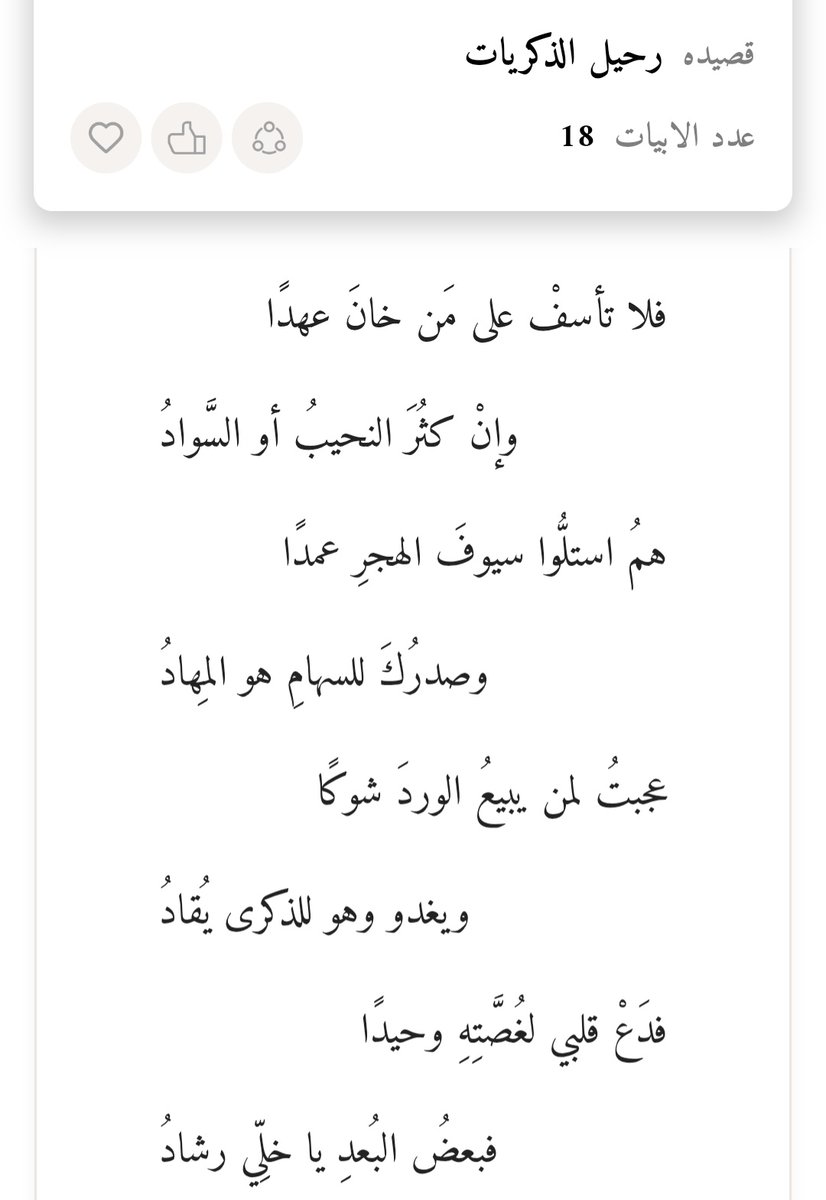 قصيده رحيل الذكريات
عدد الابيات 18
فلا تأسفْ على مَن خانَ عهدًا
وإنْ كثُرَ النحيبُ أو السَّوادُ
همُ استلُّوا سيوفَ الهجرِ عمدًا
وصدرُكَ للسهامِ هو المِهادُ
عجبتُ لمن يبيعُ الوردَ شوكًا
ويغدو وهو للذكرى يُقادُ
فدَعْ قلبي لغُصَّتِهِ وحيدًا
فبعضُ البُعدِ يا خلِّي رشادُ